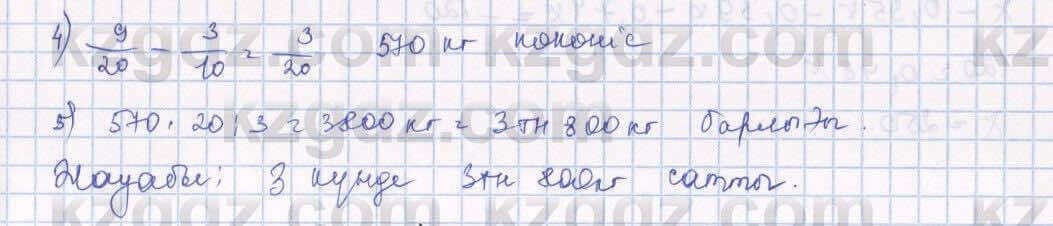 4) 9/20 - 3/10 = 3/20 570 кг көкөніс
5) 570 · 20 : 3 = 3800 кг = 3 тн 800 кг барлығы.
Жауабы: 3 күнде 3 тн 800 кг сатты.
kzgdz.com